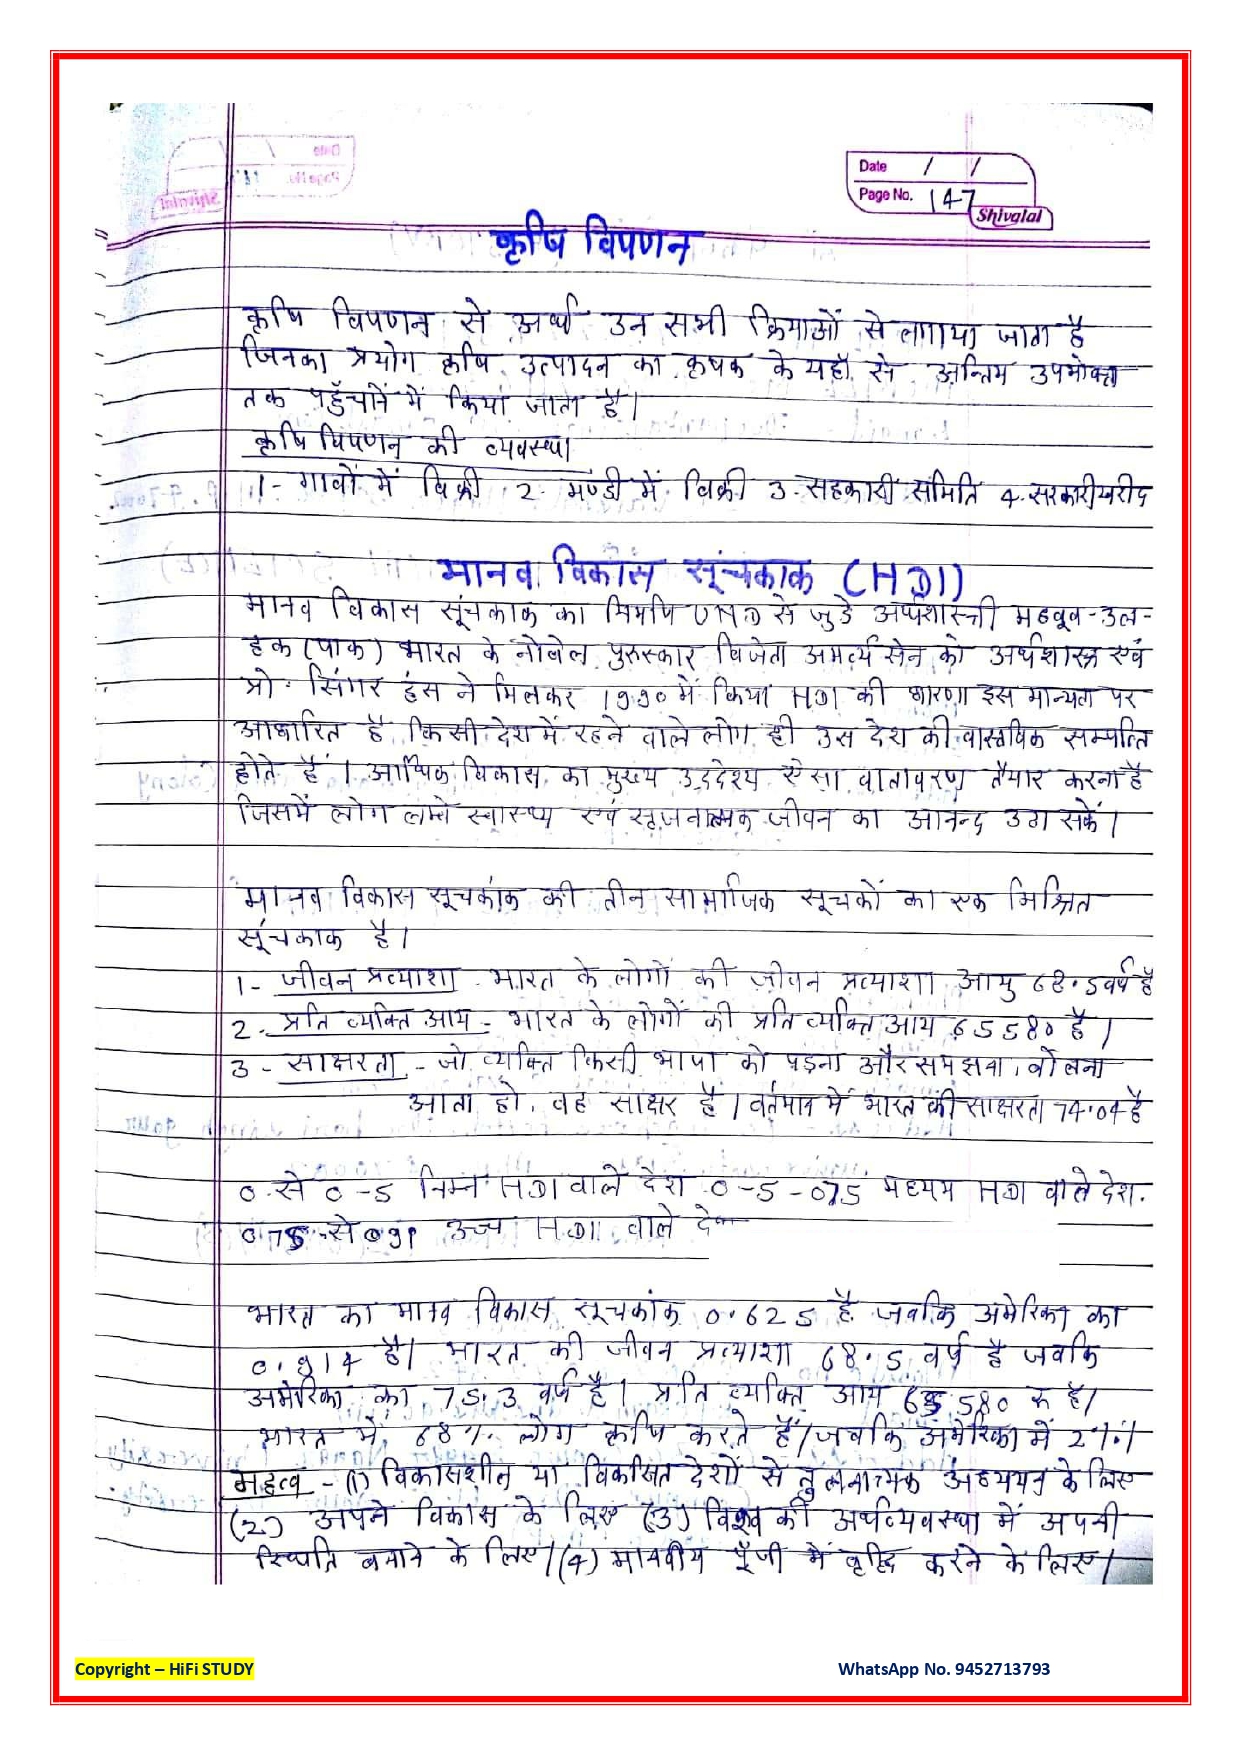 Date / /
Page No. 147
Shivalal
कृषि विपणन
कृषि विपणन से अर्थ उन सभी क्रियाओं से लगाया जाता है
जिनका प्रयोग कृषि उत्पादन का कृषक के यहाँ से अन्तिम उपभोक्ता
तक पहुँचाने में किया जाता है।
कृषि विपणन की व्यवस्था
1- गावों में विक्री 2- मण्डी में विक्री 3- सहकारी समिति 4- सरकारी खरीद
मानव विकास सूंचकाक (HDI)
मानव विकास सूंचकाक का निर्माण UND से जुडे अर्थशास्त्री महबूब-उल-
हक (पाक) भारत के नोवेल पुरुस्कार विजेता अमर्त्य सेन को अर्थशास्त्र एवं
प्रो. सिंगर हंस ने मिलकर 1990 में किया HDI की धारणा इस मान्यता पर
आधारित है किसी देश में रहने वाले लोग ही उस देश की वास्तविक सम्पत्ति
होते हैं। आर्थिक विकास का मुख्य उद्देश्य ऐसा वातावरण तैयार करना है
जिसमें लोग लम्बे स्वास्थ्य एवं सृजनात्मक जीवन का आनन्द उठा सकें।
मानव विकास सूचकांक की तीन सामाजिक सूचकों का एक मिश्रित
सूंचकाक है।
1- जीवन प्रत्याशा - भारत के लोगों की जीवन प्रत्याशा आयु 68.5 वर्ष है
2- प्रति व्यक्ति आय - भारत के लोगों की प्रति व्यक्ति आय 65580 है।
3- साक्षरता - जो व्यक्ति किसी भाषा को पड़ना और समझना, वोलना
आता हो, वह साक्षर है। वर्तमान में भारत की साक्षरता 74.04 है
0 से 0-5 निम्न HDI वाले देश 0-5-075 मध्यम HDI वाले देश.
075 से उच्य HDI वाले
भारत का मानव विकास सूचकांक 0.625 है जबकि अमेरिका का
0.914 है। भारत की जीवन प्रत्याशा 68.5 वर्ष है जबकि
अमेरिका का 75.3 वर्ष है। प्रति व्यक्ति आय 65580 रू है।
भारत में 68% लोग कृषि करते हैं। जबकि अमेरिका में 2%।
महत्व - (1) विकासशील या विकसित देशों से तुलनात्मक अध्ययन के लिए
(2) अपने विकास के लिए (3) विश्व की अर्थव्यवस्था में अपनी
स्थिति बनाने के लिए। (4) मानवीय पूँजी में वृद्धि करने के लिए।
Copyright – HiFi STUDY
WhatsApp No. 9452713793